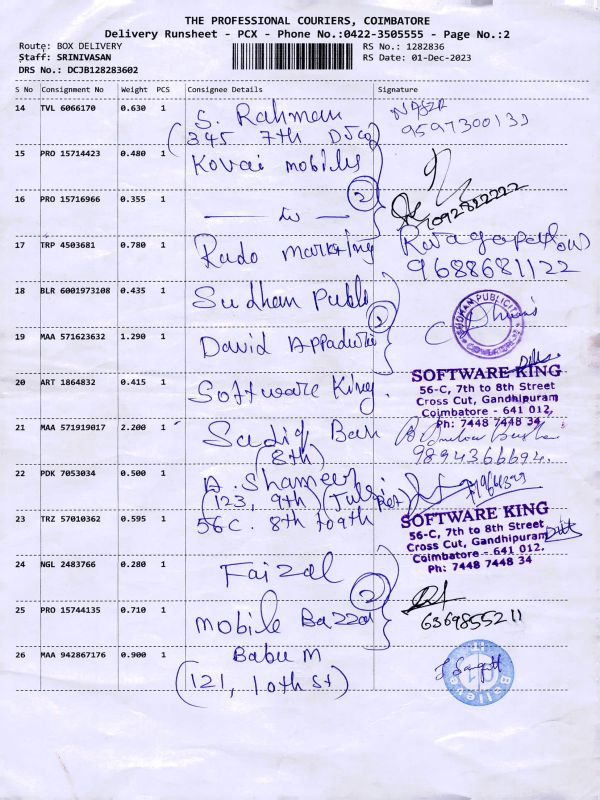 THE PROFESSIONAL COURIERS, COIMBATORE
Delivery Runsheet - PCX - Phone No.:0422-3505555 - Page No.:2
Route: BOX DELIVERY
RS No.: 1282836
Staff: SRINIVASAN
RS Date: 01-Dec-2023
DRS No.: DCJB128283602
S No Consignment No Weight PCS Consignee Details Signature
14 TVL 6066170 0.630 1 S. Rahman
(345 7th
15 PRO 15714423 0.480 1 Kovai mobiles
16 PRO 15716966 0.355 1 2
17 TRP 4503681 0.780 1 Rado marketing
9688681122
18 BLR 6001973108 0.435 1 Sudhan Publi
19 MAA 571623632 1.290 1 David Appadurai
20 ART 1864832 0.415 1 Software King.
SOFTWARE KING
56-C, 7th to 8th Street
Cross Cut, Gandhipuram
Coimbatore - 641 012.
Ph: 7448 7448 34
21 MAA 571919017 2.200 1 Sadiq Bah
(8th)
9894366694.
22 PDK 7053034 0.500 1 A. Shameer
(123, 9th)
23 TRZ 57010362 0.595 1 56C. 8th to 9th
SOFTWARE KING
56-C, 7th to 8th Street
Cross Cut, Gandhipuram
Coimbatore - 641 012.
Ph: 7448 7448 34
24 NGL 2483766 0.280 1 Faizal
2
25 PRO 15744135 0.710 1 mobile Bazzar
6369855211
26 MAA 942867176 0.900 1 Babu M
(121, 10th St)